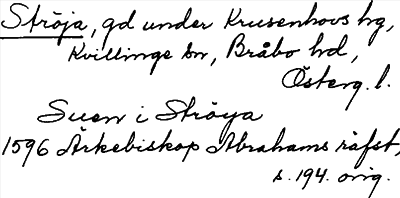 Ströja, gd under Krusenhovs hg,
Kvillinge sn, Bråbo hd,
Österg. l.
Suen i Ströya
1596 Ärkebiskop Abrahams räfst,
s. 194. orig.